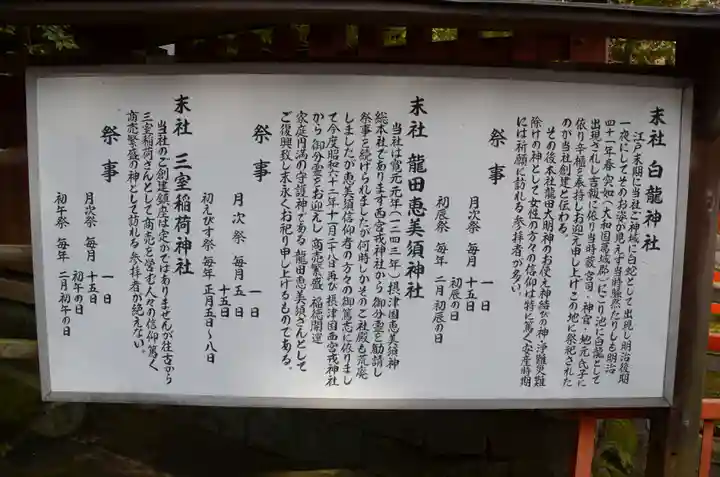 末社 白龍神社
江戸末期に当社ご神域に白蛇として出現し明治後期
一夜にしてそのお姿が見えず当時騒然たりしも明治
四十一年春 突如(大和国葛城郡)にごり池に白龍として
出現されし吉報に依り当時蔵宮司・神官・地元氏子に
依り辛櫃を奉持しお迎え申し上げこの地に祭祀された
のが当社創建と伝わる。
その後本社龍田大明神のお使え神結びの神・浄難災難
除けの神として女性の方々の信仰は特に篤く安産時期
には祈願に訪れる参拝者が多い。
祭事
月次祭 毎月 一日
十五日
初辰の日
初辰祭 毎年 二月初辰の日
末社 龍田恵美須神社
当社は寛元元年(一二四三年)摂津国恵美須神
総本社であります西宮戎神社から御分霊を勧請し
祭事を続けられましたが何時しかそのご社殿も荒廃
しましたが恵美須信仰者の方々の御篤志に依りまし
て今度昭和六十三年十一月二十八日再び摂津国西宮戎神社
から御分霊をお迎えし商売繁盛 福徳開運
家庭円満の守護神である龍田恵美須さんとして
ご復興致し末永くお祀り申し上げるものである。
祭事
月次祭 毎月 一日
五日
十五日
初えびす祭 毎年 正月五日〜八日
末社 三室稲荷神社
当社のご創建鎮座は定かではありませんが往古から
三室稲荷さんとして商売を営む人々の信仰篤く
商売繁盛の神として訪れる参拝者が絶えない。
祭事
月次祭 毎月 一日
十五日
初午の日
初午祭 毎年 二月初午の日